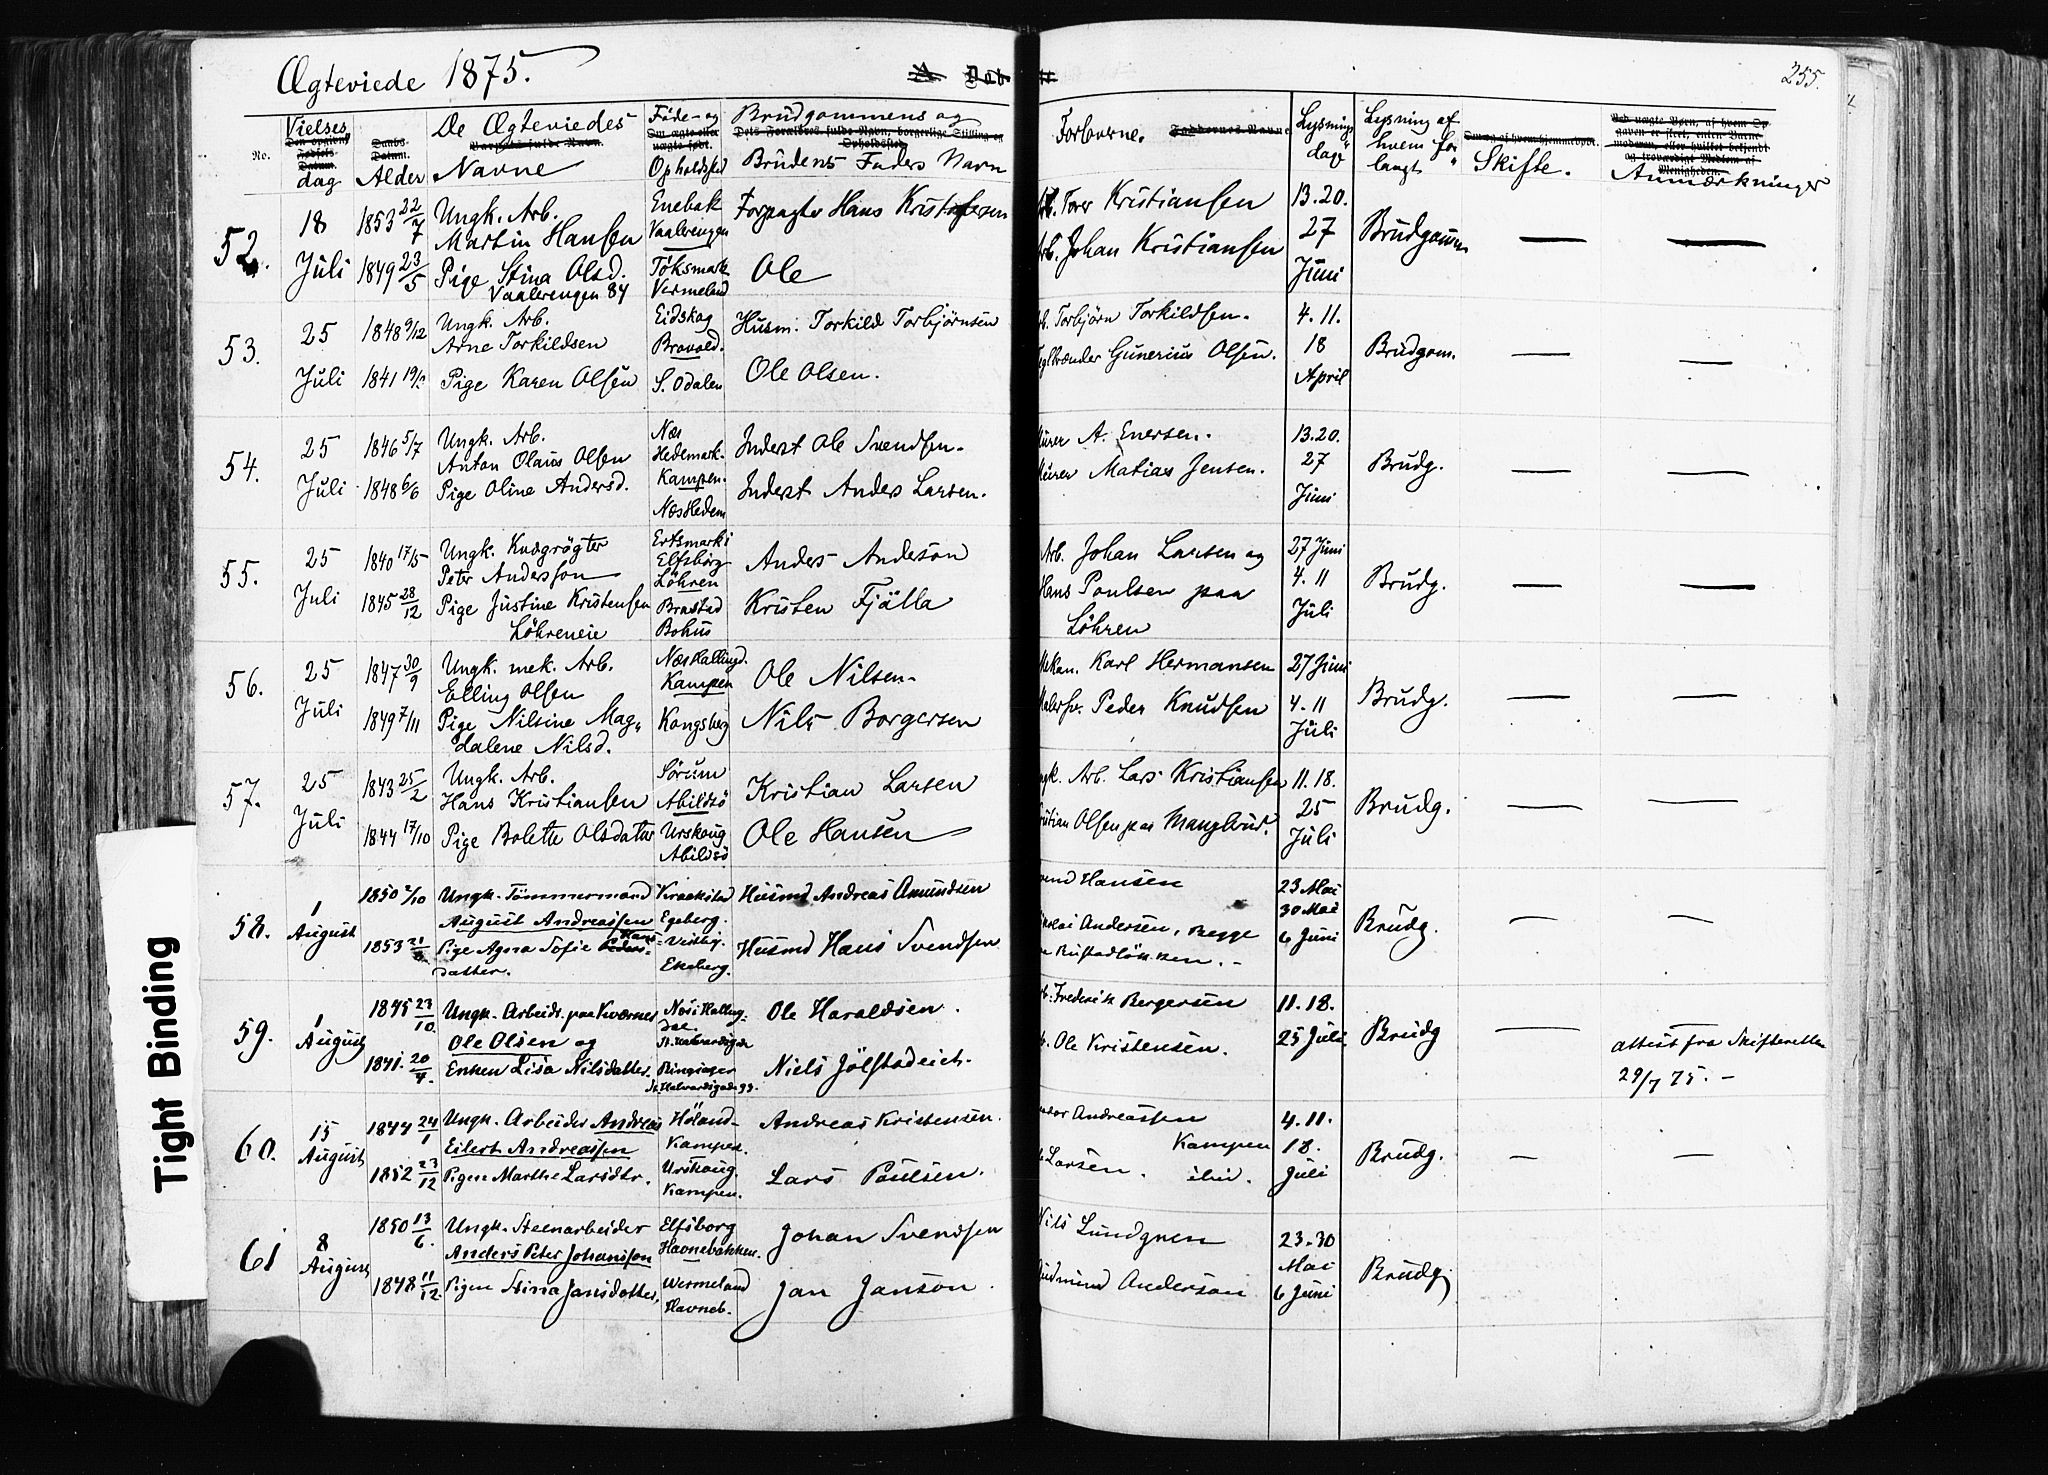 Ægteviede 1875.
255.
No.
Vielses dag
Alder
De Ægteviedes Navne
Føde- og Opholdsted
Brudgommens og Brudens Faders Navn
Forlovere.
Lysnings dag
Lysning af hvem forlangt
Skifte.
Anmærkninger
52. 18 Juli
1853 22/7 Ungk. Arb. Martin Hansen
Enebak Vaalerengen
Forpagter Hans Kristofersen
1849 23/5 Pige Stina Olsd. Vaalerengen 84
Töksmark Vermeland
Ole
Torer Kristiansen
Arb. Johan Kristiansen
13. 20. 27 Juni
Brudgomm
— —
53. 25 Juli
1848 9/12 Ungk. Arb. Arne Torkildsen
Eidskog Bravold.
Husm. Torkild Torbjørnsen
1841 Pige Karen Olsen
S. Odalen
Ole Olsen.
Torbjörn Torkildsen.
Gunerius Olsen.
4. 11. 18 April
Brudgom.
— —
54. 25 Juli
1846 5/7 Ungk. Arb. Anton Olaus Olsen
Næs Hedemark. Kampen.
Inderst Ole Svendsen.
1848 6/6 Pige Oline Andersd.
Næs Hedem
Inderst Anders Larsen.
A. Enersen.
Matias Jensen.
13. 20. 27 Juni
Brudg.
— —
55. 25 Juli
1840 17/5 Ungk. Kvægrøgter Peter Andersson
Ertsmark i Elfsborg Löhren
Anders Anderson
1845 28/12 Pige Justine Kristensen Löhreneie
Brastad Bohus
Kristen Fjälla
Arb. Johan Larsen og
Hans Poulsen paa
Löhren
27 Juni 4. 11 Juli
Brudg.
— —
56. 25 Juli
1847 30/9 Ungk. mek. Arb. Elling Olsen
Næs Hallingd. Kampen
Ole Nilsen.
1849 7/11 Pige Nilsine Magdalene Nilsd.
Kongsberg
Nils Borgersen
Mekan. Karl Hermansen
Malersv. Peder Knudsen
27 Juni 4. 11 Juli
Brudg.
— —
57. 25 Juli
1843 25/2 Ungk. Arb. Hans Kristiansen
Sørum Abildsö
Kristian Larsen
1844 17/10 Pige Bolette Olsdatter
Urskoug Abildsö
Ole Hansen
Arb. Lars Kristiansen
Olsen paa Manglerud.
11. 18. 25 Juli
Brudg.
— —
58. 1 August
1850 2/10 Ungk. Tömmermand August Andreassen
Kraakstad Egeberg.
Husmd Andreas Amundsen
1853 Pige Agna Sofie Hansdatter.
Vestbg. Ekeberg.
Husmd Hans Svendsen
Hansen
Andersen, begge
23 Mai 30 Mai 6 Juni
Brudg.
— —
59. 1 August
1845 23/10. Ungk. Arbeidr. paa Kværnes Ole Olsen og
Næs i Hallingdal St. Halvardsgade
Ole Haraldsen.
1841. 20/4. Enken Lisa Nilsdatter.
Ringsager St. Halvardsgade 93.
Niels Jölstadeich.
Frederik Bergersen
Ole Kristensen.
11. 18. 25 Juli
Brudg
— —
attest fra Skifteretten
29/7 75. –
60. 15 August
1844 24/1 Ungk. Arbeider Andreas Eilert Andreassen
Höland Kampen.
Andreas Kristensen.
1852 23/12 Pigen Marthe Larsdtr.
Urskoug. Kampen.
Lars Poulsen.
Andreassen Kampen
Larsen. ibid.
4. 11. 18. Juli
Brudg.
— —
61 8 August
1850 13/6. Ungk. Steenarbeider Anders Peter Johansson
Elfsborg Havnebakken.
Johan Svendsen
1848 11/12. Pigen Stina Jansdatter,
Wermeland Havneb.
Jan Janson.
Nils Lundgren
Gudmund Anderson
23. 30 Mai 6 Juni
Brudg.
Tight Binding